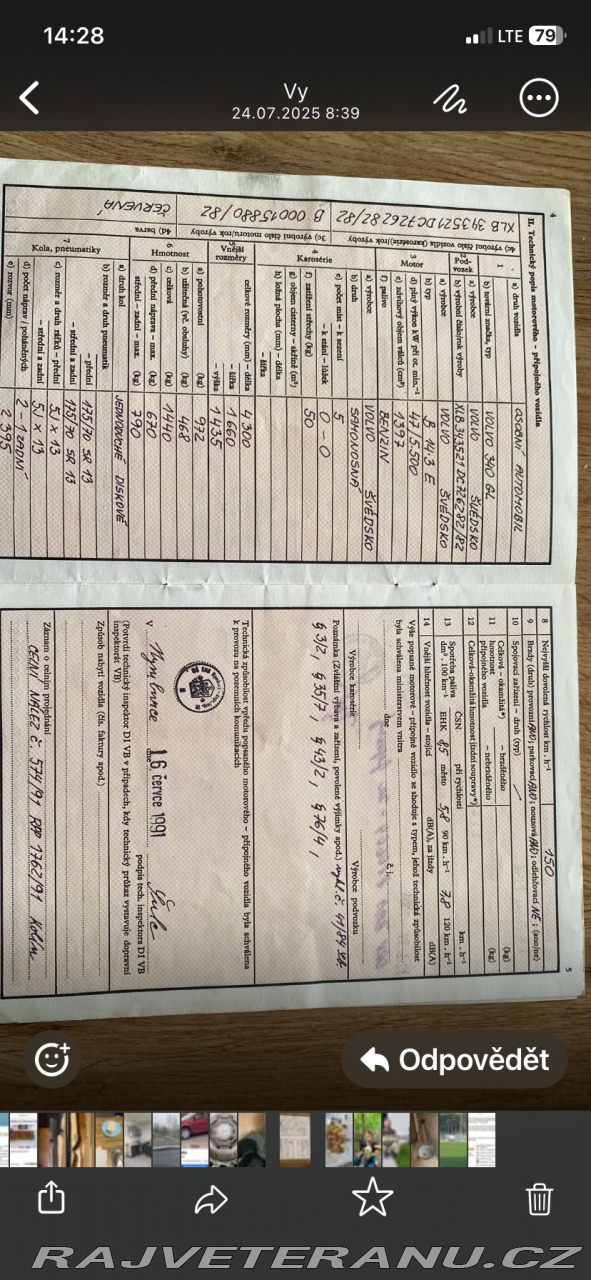 14:28
LTE 79
Vy
24.07.2025 8:39
4
II. Technický popis motorového - přípojného vozidla
1 a) druh vozidla OSOBNÍ AUTOMOBIL
b) tovární značka, typ VOLVO 340 GL
2 Podvozek a) výrobce VOLVO ŠVÉDSKO
b) výrobní číslo/rok výroby XLB 343521 DC726282/82
3 Motor a) výrobce VOLVO ŠVÉDSKO
b) typ B 14.3 E
d) plný výkon kW při ot. min.⁻¹ 47/5.500
e) zdvihový objem válců (cm³) 1397
f) palivo BENZIN
4 Karosérie a) výrobce VOLVO ŠVÉDSKO
b) druh SAMONOSNÁ
c) počet míst - k sezení 5
- k stání - lůžek 0 - 0
f) zatížení střechy (kg) 50
g) objem cisterny - skříně (m³)
h) ložná plocha (mm) - délka
- šířka
5 Vnější rozměry celkové rozměry (mm) - délka 4300
- šířka 1660
- výška 1435
6 Hmotnost a) pohotovostní (kg) 972
b) užitečná (vč. obsluhy) (kg) 468
c) celková (kg) 1440
d) přední náprava - max. (kg) 670
střední - zadní - max. (kg) 790
7 Kola, pneumatiky a) druh kol JEDNODUCHÉ DISKOVÉ
b) rozměr a druh pneumatik
- přední 175/70 SR 13
- střední a zadní 175/70 SR 13
c) rozměr a druh ráfků - přední 5J x 13
- střední a zadní 5J x 13
d) počet náprav / poháněných 2 - 1 ZADNÍ
e) rozvor (mm) 2 395
4c) výrobní číslo vozidla (karosérie)/rok výroby
XLB 343521 DC726282/82
3c) výrobní číslo motoru/rok výroby
B 00015880/82
4d) barva
ČERVENÁ
5
8 Nejvyšší dovolená rychlost km . h⁻¹ 150
9 Brzdy (druh) provozní ANO; parkovací ANO; nouzová ANO; odlehčovací NE; (ano/ne)
10 Spojovací zařízení - druh (typ)
11 Celková - okamžitá*) hmotnost přípojného vozidla - brzděného (kg)
- nebrzděného (kg)
12 Celková-okamžitá hmotnost jízdní soupravy*)
13 Spotřeba paliva dm³ . 100 km⁻¹ ČSN při rychlosti km . h⁻¹
EHK 8,5 město 5,8 90 km . h⁻¹ 7,8 120 km . h⁻¹
14 Vnější hlučnost vozidla - stojící dB(A), za jízdy dB(A)
Výše popsané motorové - přípojné vozidlo se shoduje s typem, jehož technická způsobilost
byla schválena ministerstvem vnitra
dne č. j.
Výrobce karosérie Výrobce podvozku
Poznámka (Zvláštní výbava a zařízení, povolené výjimky apod.) vyhl. č. 41/84 Sb.
§ 3/2, § 35/7, § 43/2, § 76/4,
Technická způsobilost vpředu popsaného motorového - přípojného vozidla byla schválena
k provozu na pozemních komunikacích
V Nymburce dne 16. července 1991
podpis tech. inspektora DI VB
(Potvrdí technický inspektor DI VB v případech, kdy technický průkaz vystavuje dopravní
inspektorát VB)
Způsob nabytí vozidla (čís. faktury apod.)
Záznam o celním projednání
CELNÍ NÁLEZ č. 574/91 RPP 1762/91 Kolín
Odpovědět
RAJVETERANU.CZ